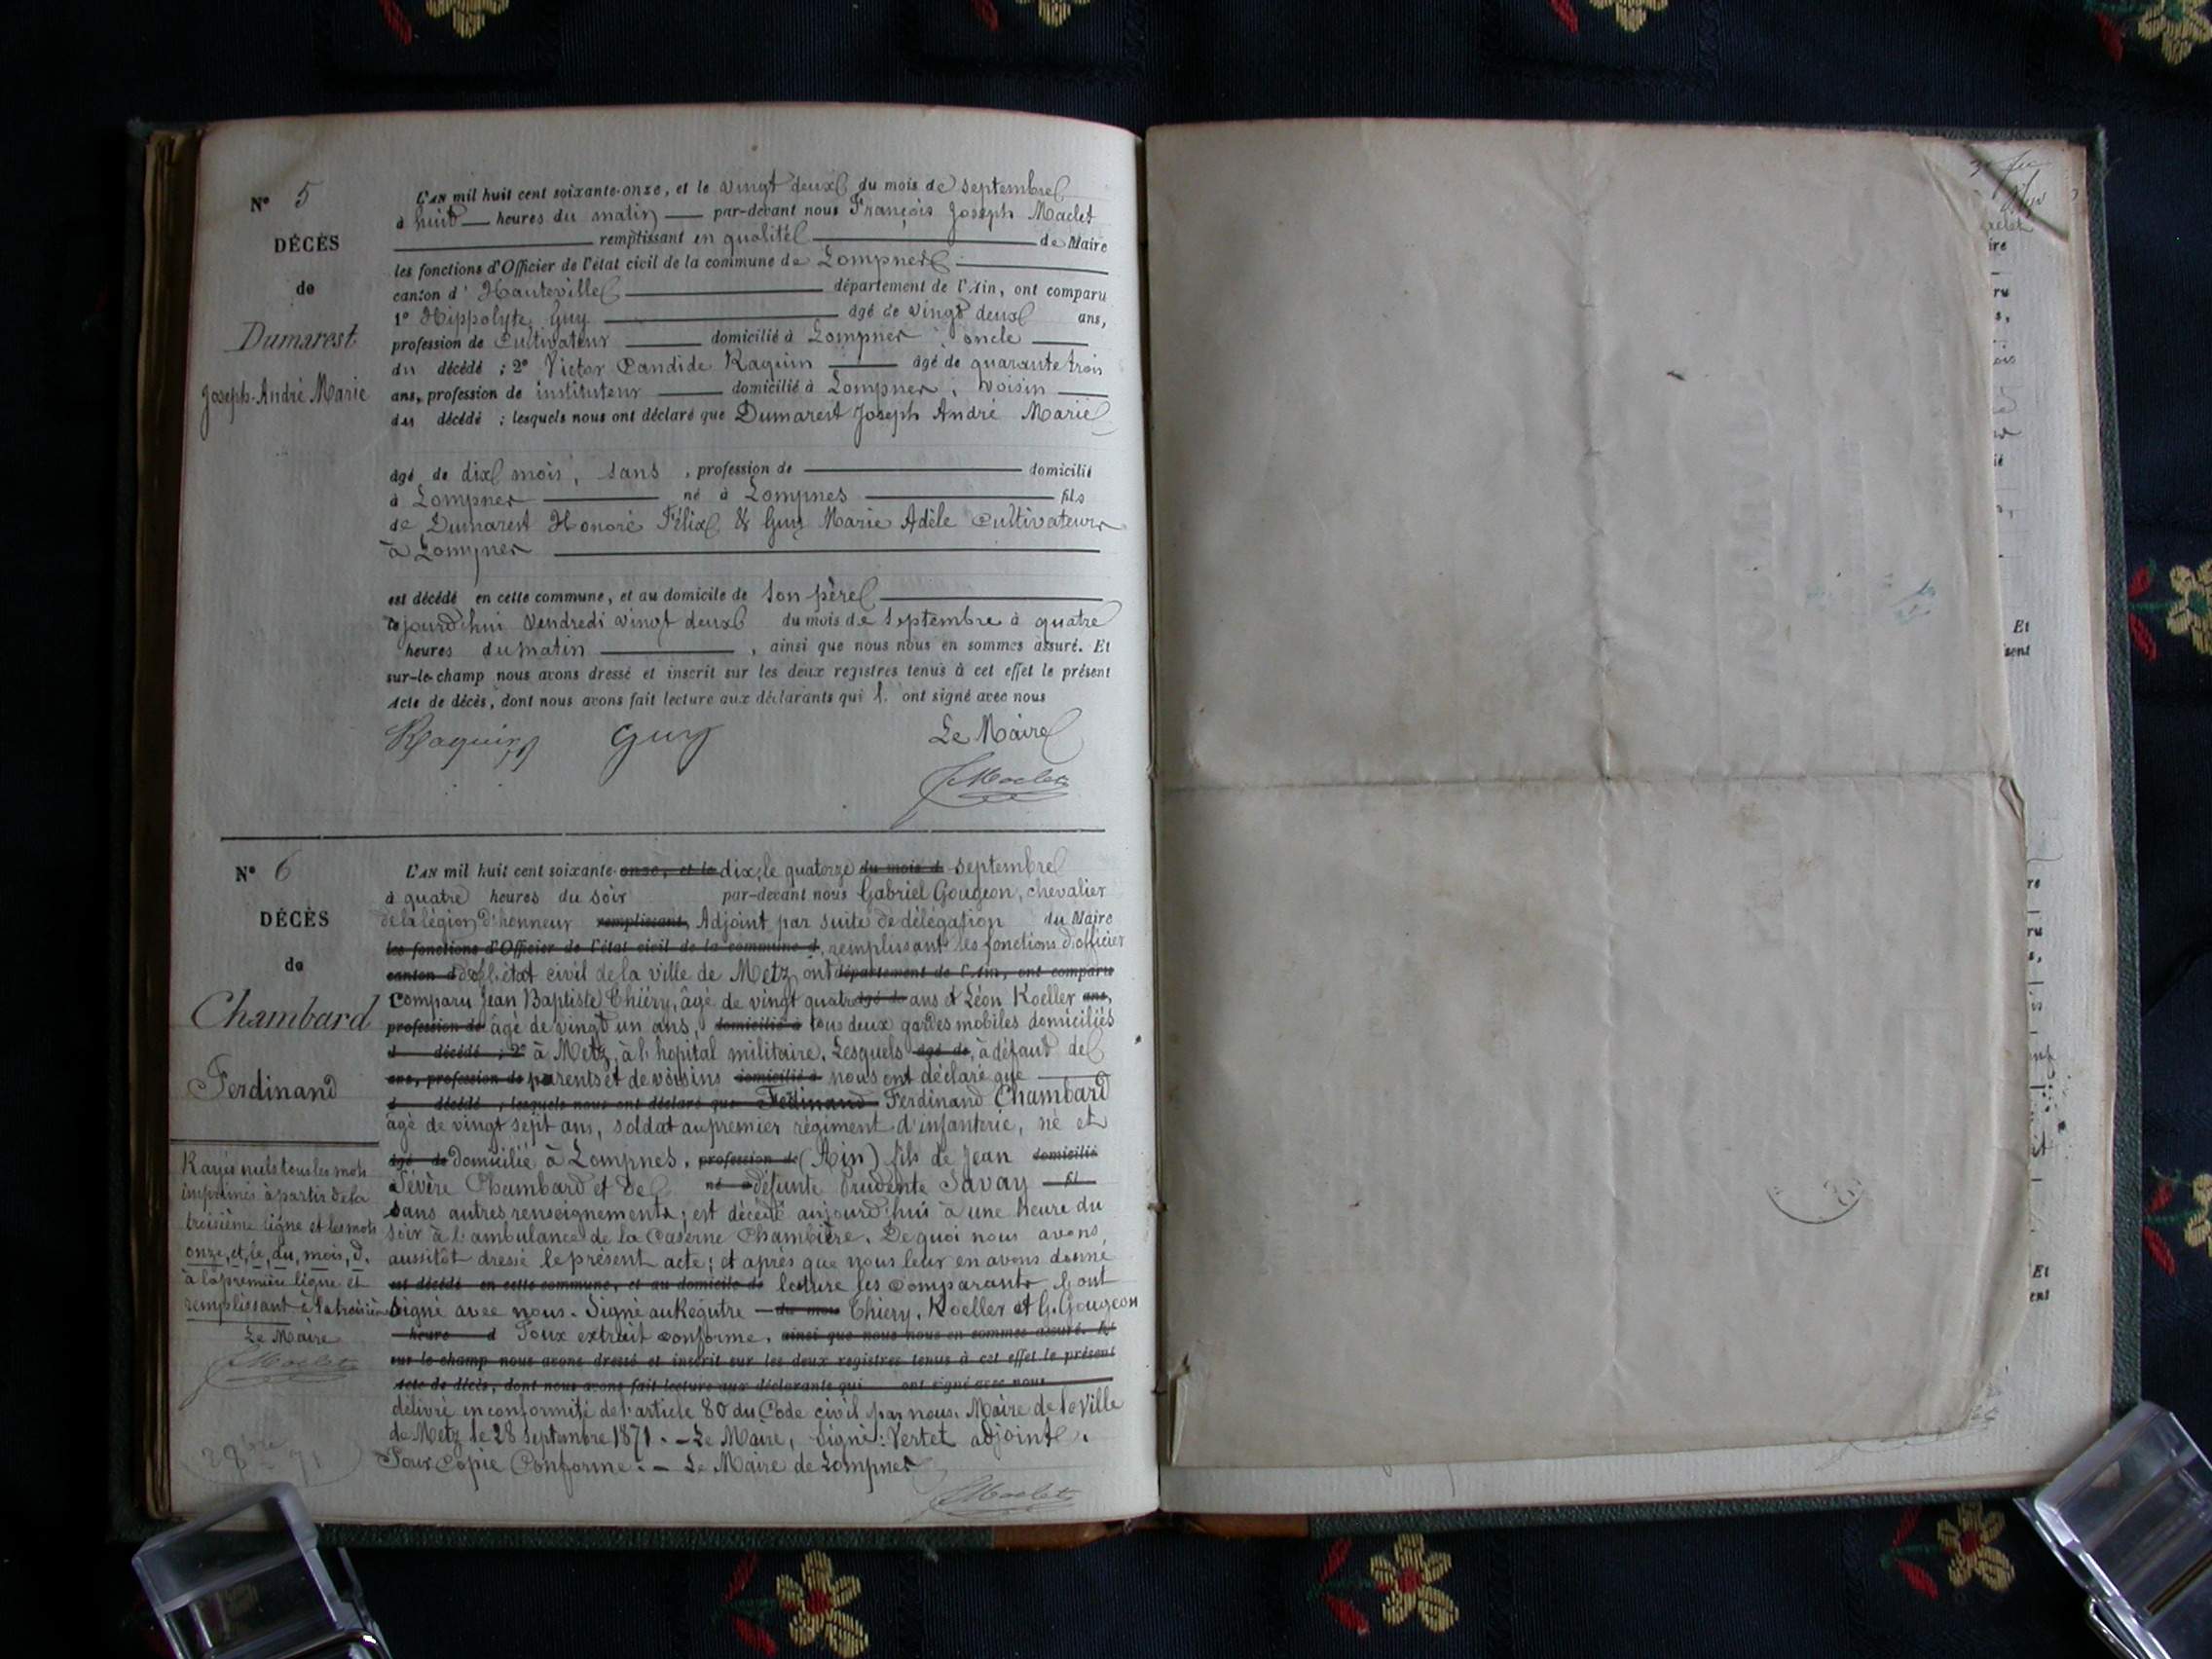 N° 5
DÉCÈS
de
Dumarest
Joseph-André Marie
L'AN mil huit cent soixante-onze, et le vingt deux du mois de septembre
à huit heures du matin par-devant nous François Joseph Maclet
remplissant en qualité de Maire
les fonctions d'Officier de l'état civil de la commune de Lompnes
canton d' Hauteville département de l'Ain, ont comparu
1° Hippolyte Guy âgé de vingt deux ans,
profession de Cultivateur domicilié à Lompnes, oncle
du décédé ; 2° Victor Candide Raquin âgé de quarante trois
ans, profession de instituteur domicilié à Lompnes, voisin
du décédé ; lesquels nous ont déclaré que Dumarest Joseph André Marie
âgé de dix mois, sans , profession de domicilié
à Lompnes né à Lompnes fils
de Dumarest Honoré Félix & Guy Marie Adèle Cultivateurs
à Lompnes
est décédé en cette commune, et au domicile de son père
jourd'hui vendredi vingt deux du mois de septembre à quatre
heures du matin , ainsi que nous nous en sommes assuré. Et
sur-le-champ nous avons dressé et inscrit sur les deux registres tenus à cet effet le présent
Acte de décès, dont nous avons fait lecture aux déclarants qui l' ont signé avec nous
Raquin Guy Le Maire
Maclet
N° 6
DÉCÈS
de
Chambard
Ferdinand
L'AN mil huit cent soixante-onze, et le dix, le quatorze du mois d septembre
à quatre heures du soir par-devant nous Gabriel Gougeon, chevalier
de la légion d'honneur remplissant Adjoint par suite de délégation du Maire
les fonctions d'Officier de l'état civil de la commune d remplissant les fonctions d'officier
canton d de l'état civil de la ville de Metz, ont département de l'Ain, ont comparu
comparu Jean Baptiste Thiéry, âgé de vingt quatre âgé de ans et Léon Koeller ans,
profession de âgé de vingt un ans, domicilié à tous deux gardes mobiles domiciliés
d décédé ; 2° à Metz, à l'hopital militaire. Lesquels âgé de, à défaut de
ans, profession de parents et de voisins domicilié à nous ont déclaré que
d décédé ; lesquels nous ont déclaré que Ferdinand Ferdinand Chambard
âgé de vingt sept ans, soldat au premier régiment d'infanterie, né et
âgé de domicilié à Lompnes. profession de (Ain) fils de Jean domicilié
Sévère Chambard et de né à défunte Prudente Savay fil
sans autres renseignements; est décédé aujourd'hui à une heure du
soir à l'ambulance de la Caserne Chambière. De quoi nous avons
aussitôt dressé le présent acte; et après que nous leur en avons donné
est décédé en cette commune, et au domicile de lecture les comparants l'ont
signé avec nous. Signé au Registre du mois Thiery, Koeller et G. Gougeon
heure d Pour extrait conforme. ainsi que nous nous en sommes assuré. Et
sur-le-champ nous avons dressé et inscrit sur les deux registres tenus à cet effet le présent
Acte de décès, dont nous avons fait lecture aux déclarants qui ont signé avec nous
délivré en conformité de l'article 80 du Code civil par nous. Maire de la Ville
de Metz le 28 septembre 1871. - Le Maire, signé: Vertet adjoint.
Pour Copie Conforme. - Le Maire de Lompnes
Maclet
Rayés nuls tous les mots
imprimés à partir de la
troisième ligne et les mots
onze, et, le, du, mois, d.
à la première ligne et
remplissant à la troisième
Le Maire
Maclet